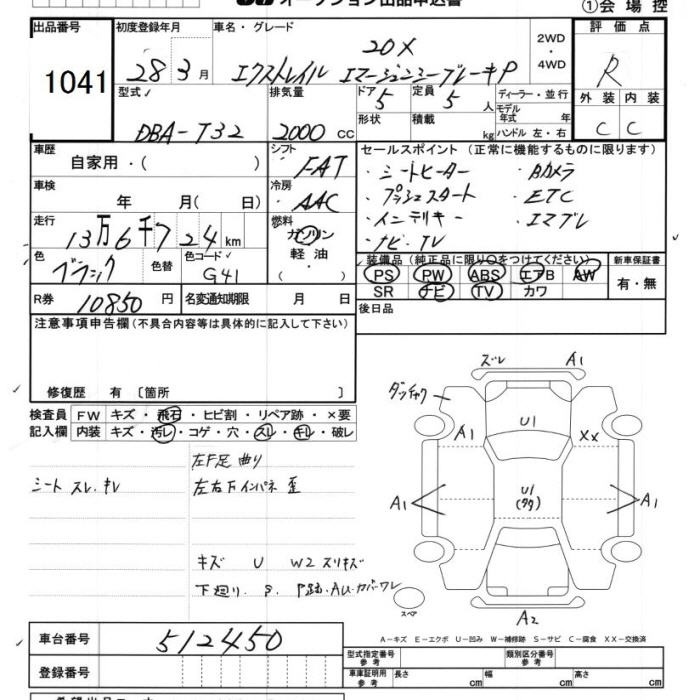 オークション出品申込書
①会場控
出品番号 初度登録年月 車名・グレード 評価点
1041 28 3月 20X 2WD・4WD R
エクストレイル エマージェンシーブレーキP
型式 排気量 ドア 5 定員 5人 ディーラー・並行 外装 内装
モデル年式 年
DBA-T32 2000cc 形状 積載 kg ハンドル 左・右 C C
車歴 自家用・( ) シフト FAT セールスポイント(正常に機能するものに限ります)
・シートヒーター ・Bカメラ
車検 年 月( 日) 冷房 AAC ・プッシュスタート ・ETC
走行 13万6千724km 燃料 ガソリン 軽油・( ) ・インテリキー ・エマブレ
・ナビ・TV
色 ブラック 色替 色コード G41 装備品(純正品に限り○をつけてください) 新車保証書
PS PW ABS エアB AW 有・無
SR ナビ TV カワ
R券 10850円 名変通知期限 月 日 後日品
注意事項申告欄(不具合内容等は具体的に記入して下さい)
修復歴 有〔箇所 〕
検査員 FW キズ・飛石・ヒビ割・リペア跡・×要
記入欄 内装 キズ・汚レ・コゲ・穴・スレ・キレ・破レ
左F足曲り
シートスレ、キレ 左右下インパネ歪
キズ U W2スリキズ
下廻り. S. P跡.AUカバーワレ
ズレ A1
ダッチャク
U1
A1 XX
A1 U1 A1
(タタ)
スペア
A2
A-キズ E-エクボ U-凹み W-補修跡 S-サビ C-腐食 XX-交換済
車台番号 512450
型式指定番号 参考 類別区分番号 参考
登録番号 車庫証明用 参考 長さ cm 幅 cm 高さ cm